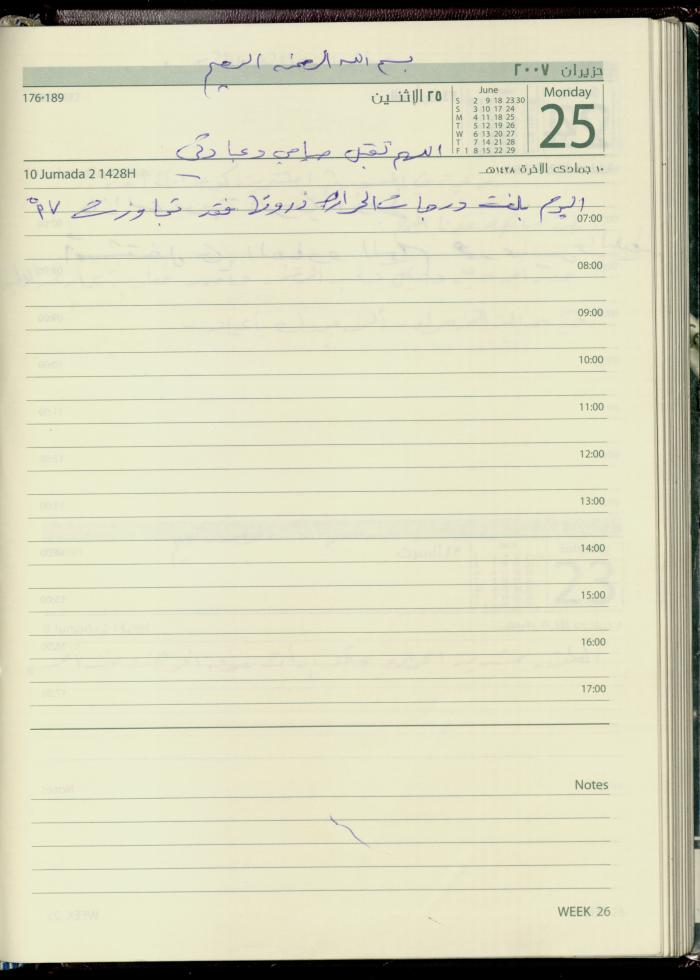 بسم الله الرحمن الرحيم
حزيران ٢٠٠٧
176-189
٢٥ الإثنين
June
S 2 9 16 23 30
S 3 10 17 24
M 4 11 18 25
T 5 12 19 26
W 6 13 20 27
T 7 14 21 28
F 1 8 15 22 29
Monday
25
اللهم تقبل
10 Jumada 2 1428H
١٠ جمادى الآخرة ١٤٢٨هـ
اليوم بلغت درجات الحرارة ذروتها فقد تجاوزت
07:00
08:00
09:00
10:00
11:00
12:00
13:00
14:00
15:00
16:00
17:00
Notes
WEEK 26